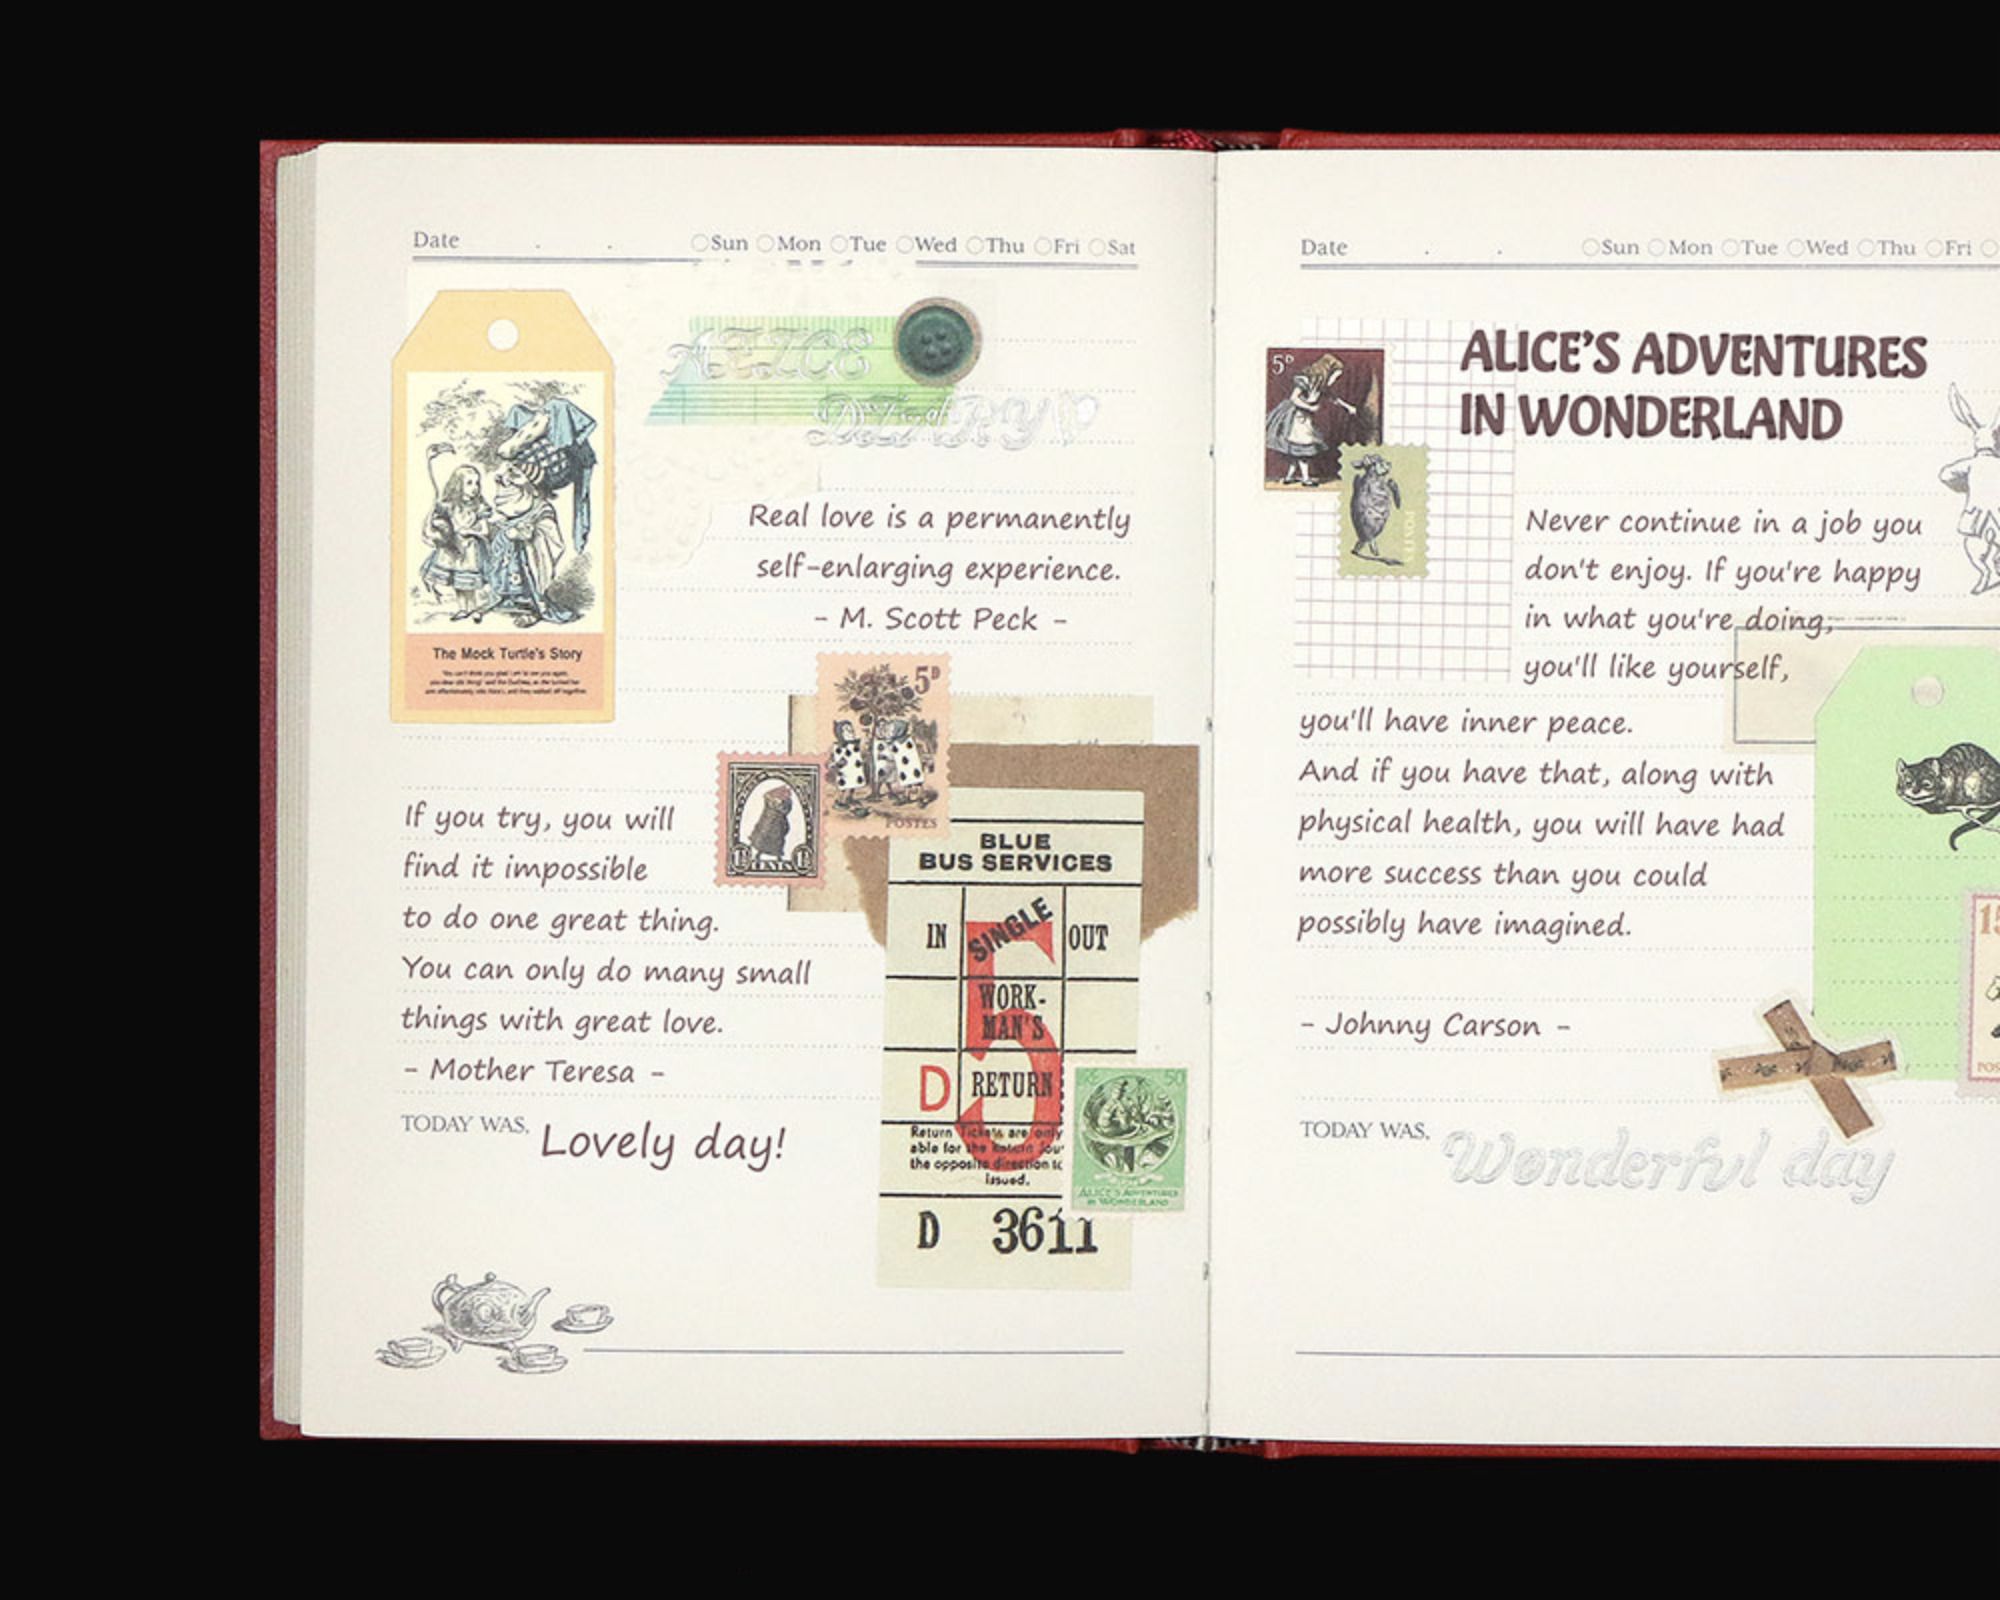 Date . . Sun Mon Tue Wed Thu Fri Sat
ALICE
DIARY
The Mock Turtle's Story
Real love is a permanently
self-enlarging experience.
- M. Scott Peck -
5D
POSTES
CENTS
If you try, you will
find it impossible
to do one great thing.
You can only do many small
things with great love.
- Mother Teresa -
TODAY WAS, Lovely day!
BLUE
BUS SERVICES
IN SINGLE OUT
WORK-
MAN'S
5
D RETURN
Return Tickets are only
able for the Return Jou
the opposite direction to
issued.
D 3611
50
ALICE'S ADVENTURES
IN WONDERLAND
Date . . Sun Mon Tue Wed Thu Fri
5D
ALICE'S ADVENTURES
IN WONDERLAND
Never continue in a job you
don't enjoy. If you're happy
in what you're doing,
you'll like yourself,
you'll have inner peace.
And if you have that, along with
physical health, you will have had
more success than you could
possibly have imagined.
- Johnny Carson -
15
POS
TODAY WAS, Wonderful day